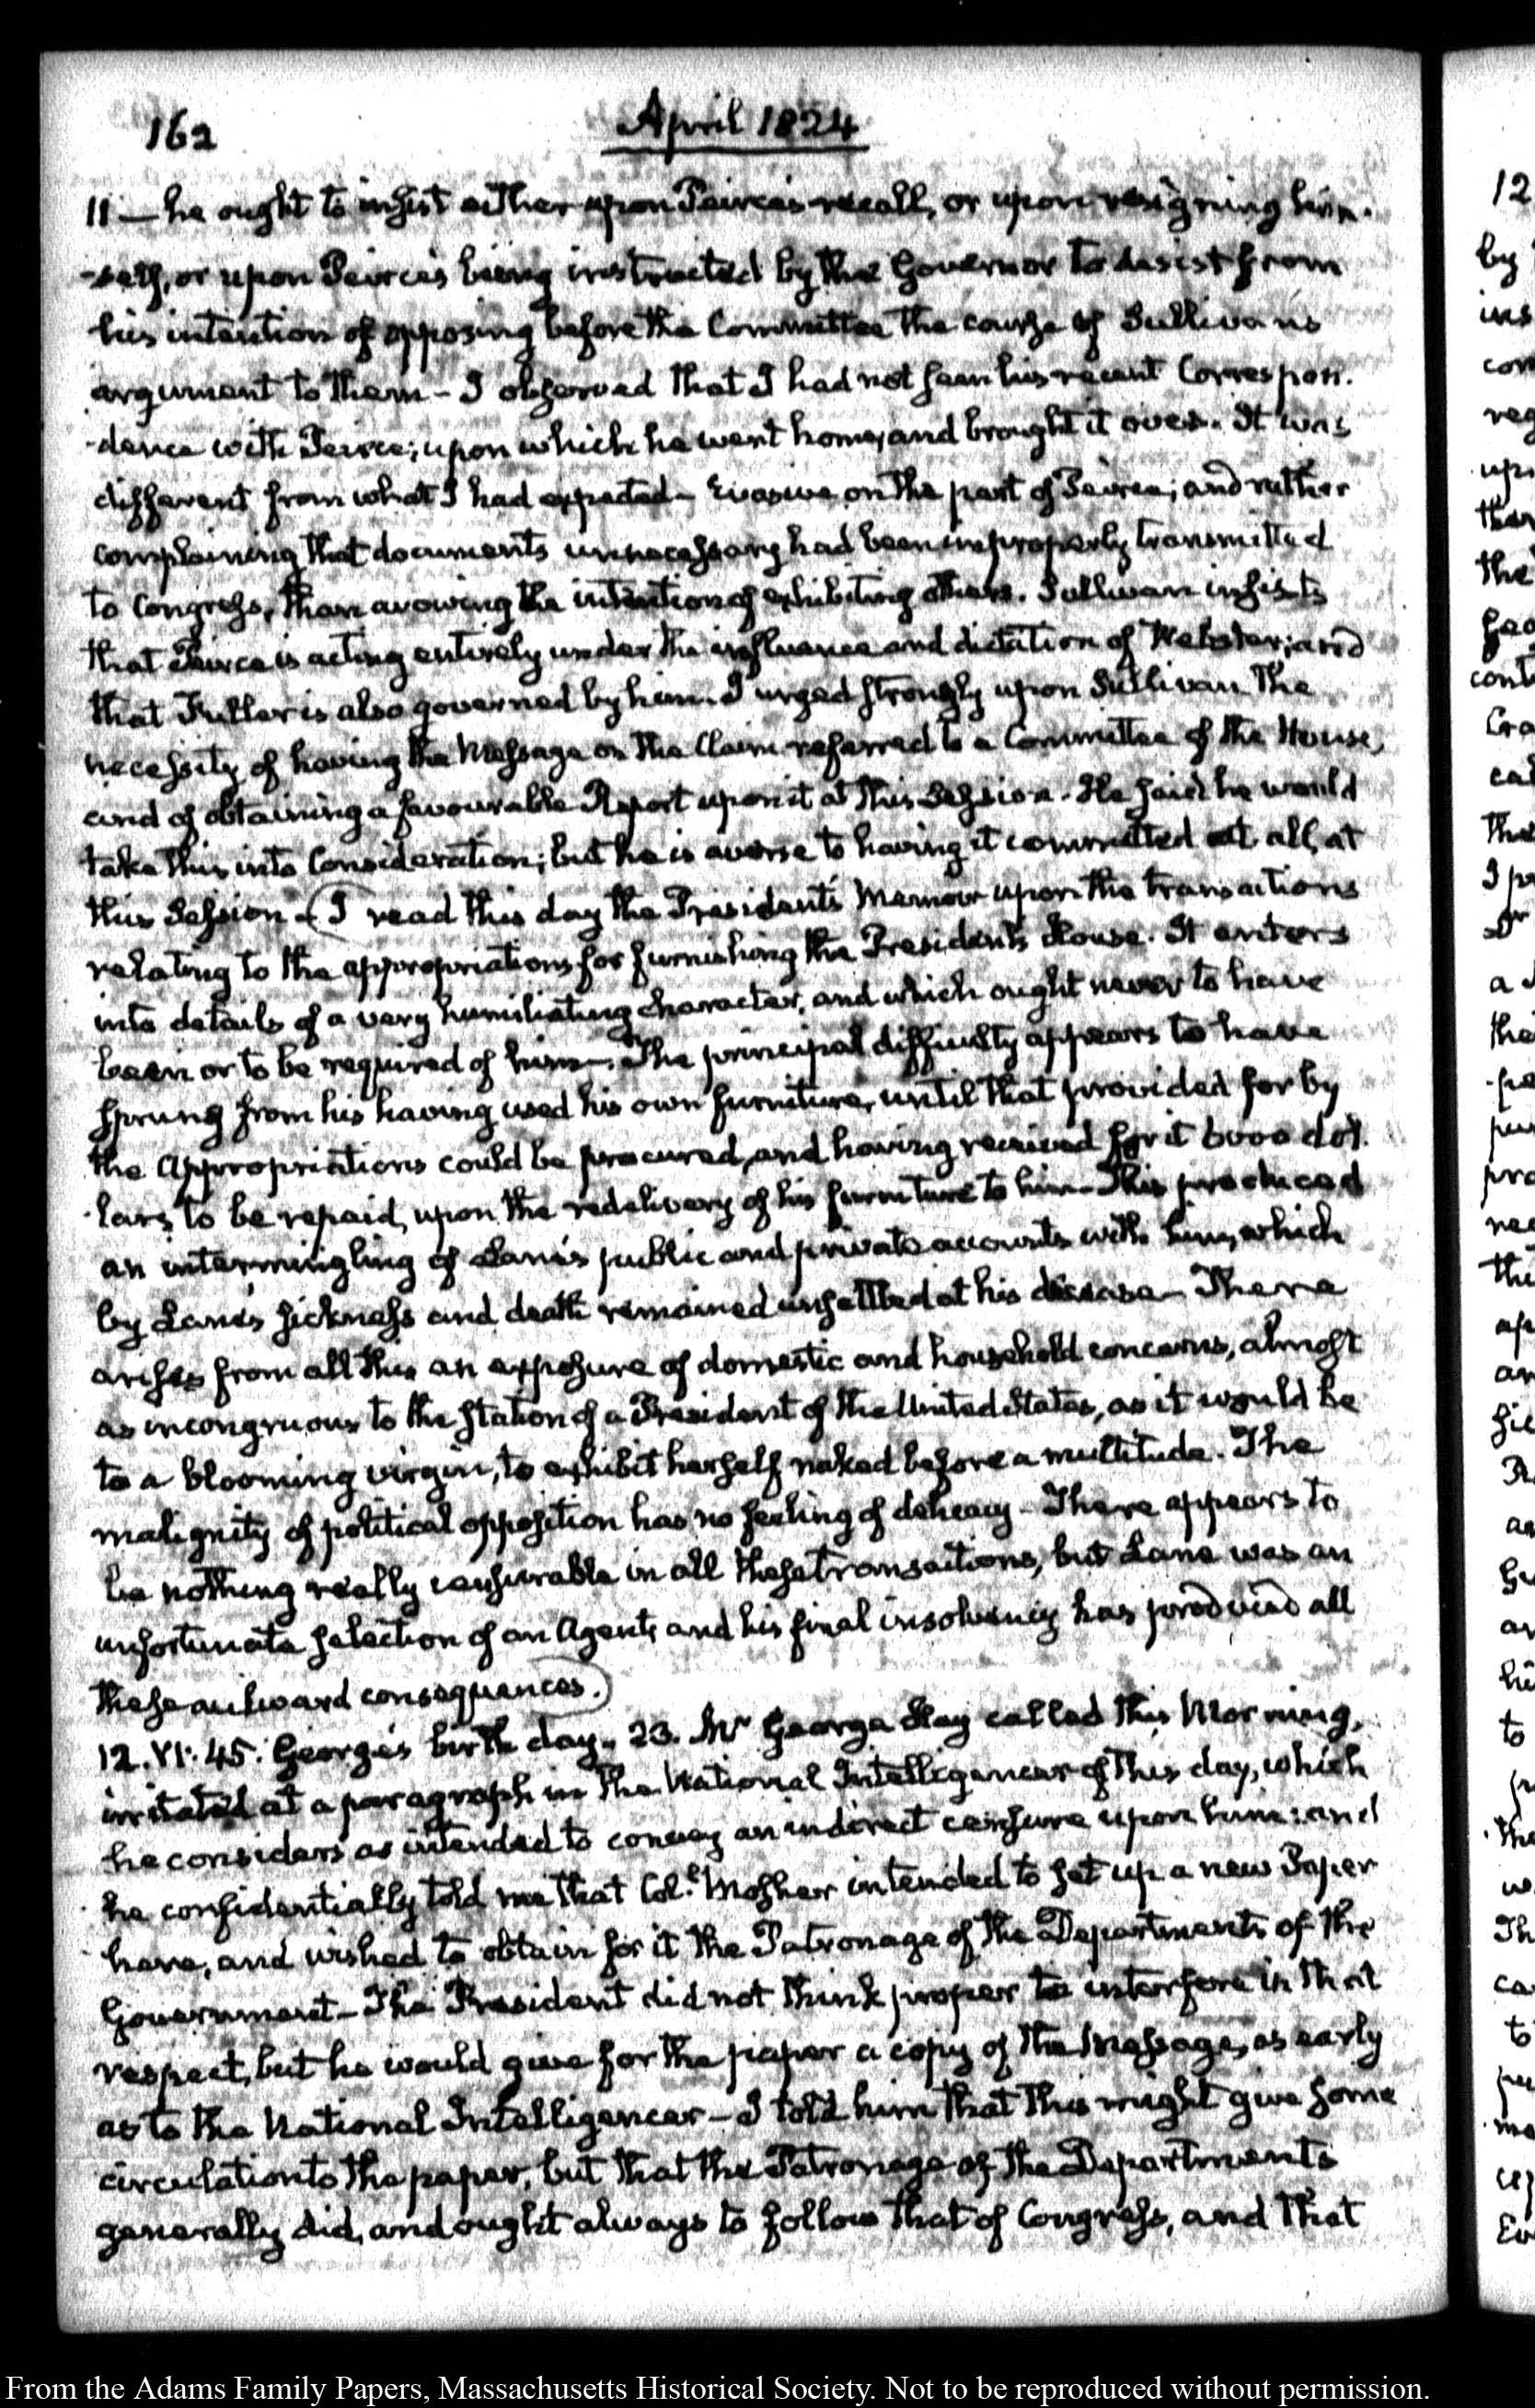 162
April 1824
11 — he ought to insist either upon Peirce's recall, or upon resigning him-
-self, or upon Peirce's being instructed by the Governor to desist from
his intention of opposing before the Committee the course of Sullivan's
argument to them - I observed that I had not seen his recent Correspon-
-dence with Peirce; upon which he went home, and brought it over. It was
different from what I had expected - Evasive on the part of Peirce; and rather
complaining that documents unnecessary had been improperly transmitted
to Congress, than avowing the intention of exhibiting others. Sullivan insists
that Peirce is acting entirely under the influence and dictation of Webster; and
that Fuller is also governed by him. I urged strongly upon Sullivan the
necessity of having the Message on the Claim referred to a Committee of the House,
and of obtaining a favourable Report upon it at this Session. He said he would
take this into Consideration; but he is averse to having it committed at all, at
this Session - (I read this day the President's Memoir upon the transactions
relating to the appropriations for furnishing the President's House. It enters
into details of a very humiliating character, and which ought never to have
been or to be required of him - The principal difficulty appears to have
sprung from his having used his own furniture, until that provided for by
the Appropriations could be procured, and having received for it 6000 dol-
-lars, to be repaid, upon the redelivery of his furniture to him - This produced
an intermingling of Lane's public and private accounts with him, which
by Lane's sickness and death remained unsettled at his decease - There
arises from all this an exposure of domestic and household concerns, almost
as incongruous to the station of a President of the United States, as it would be
to a blooming virgin, to exhibit herself naked before a multitude. The
malignity of political opposition has no feeling of delicacy - There appears to
be nothing really censurable in all these transactions, but Lane was an
unfortunate selection of an Agent, and his final insolvency has produced all
these aukward consequences.)
12. VI: 45. George's birth day. 23. Mr George Hay called this Morning,
irritated at a paragraph in the National Intelligencer of this day, which
he considers as intended to convey an indirect censure upon him: and
he confidentially told me that Col.l Mosher intended to set up a new Paper
here, and wished to obtain for it the Patronage of the Departments of the
Government - The President did not think proper to interfere in that
respect, but he would give for the paper a copy of the Message, as early
as to the National Intelligencer - I told him that this might give some
circulation to the paper, but that the Patronage of the Departments
generally did, and ought always to follow that of Congress, and that
12
by
ins
com
reg
upo
the
cont
Cra
I pr
a d
the
pur
pro
thi
ar
as
to
Th
ca
to
From the Adams Family Papers, Massachusetts Historical Society. Not to be reproduced without permission.